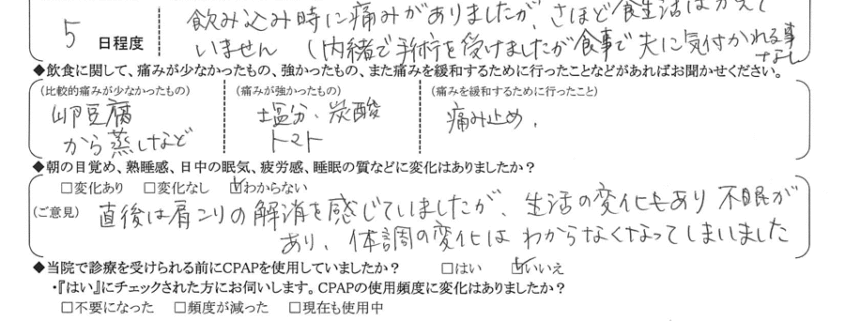 飲み込み時に痛みがありましたが、さほど食生活はかえて
5 日程度 いません (内緒で手術を受けましたが食事で夫に気付かれる事なし
◆飲食に関して、痛みが少なかったもの、強かったもの、また痛みを緩和するために行ったことなどがあればお聞かせください。
(比較的痛みが少なかったもの) (痛みが強かったもの) (痛みを緩和するために行ったこと)
卵豆腐 塩分、炭酸 痛み止め、
から蒸しなど トマト
◆朝の目覚め、熟睡感、日中の眠気、疲労感、睡眠の質などに変化はありましたか?
□変化あり □変化なし ☑わからない
(ご意見) 直後は肩こりの解消を感じていましたが、生活の変化もあり不眠が
あり、体調の変化はわからなくなってしまいました
◆当院で診療を受けられる前にCPAPを使用していましたか? □はい ☑いいえ
・『はい』にチェックされた方にお伺いします。CPAPの使用頻度に変化はありましたか?
□不要になった □頻度が減った □現在も使用中